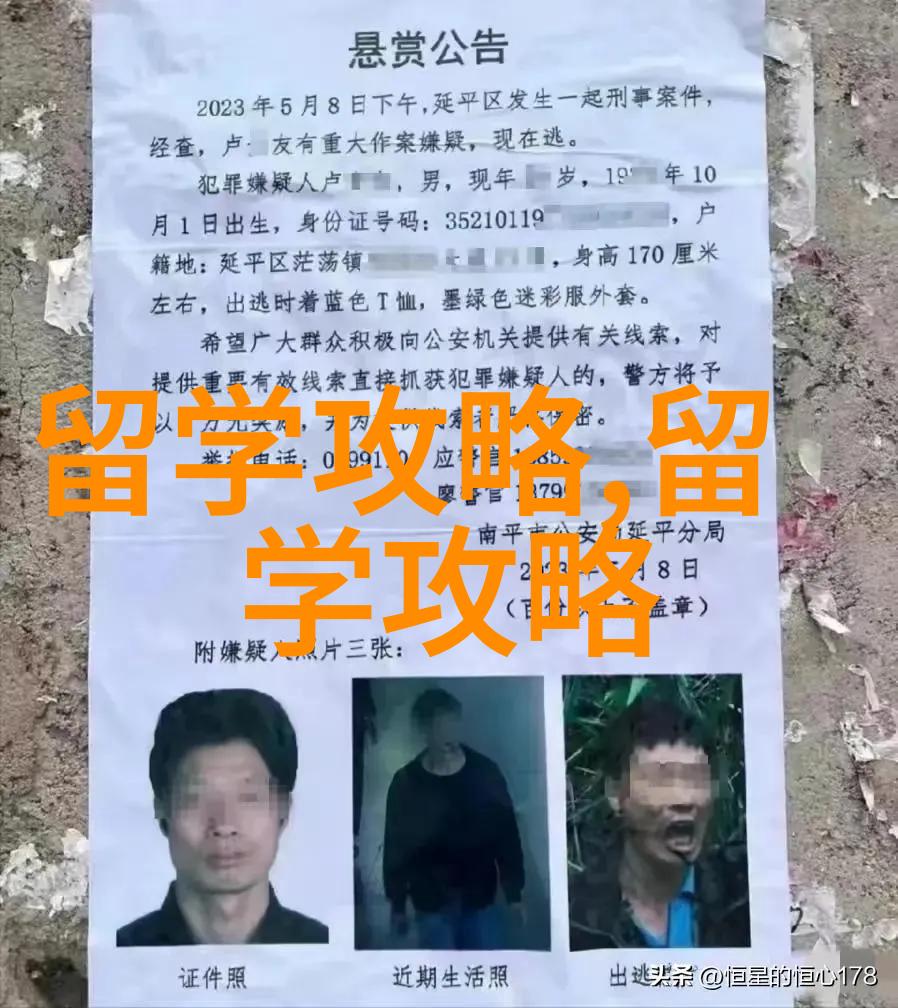 悬赏公告
2023年5月8日下午,延平区发生一起刑事案件,
经查,卢 友有重大作案嫌疑,现在逃。
犯罪嫌疑人卢 ,男,现年 岁,19 年10
月1日出生,身份证号码:35210119 ,户
籍地:延平区茫荡镇 ,身高170厘米
左右,出逃时着蓝色T恤,墨绿色迷彩服外套。
希望广大群众积极向公安机关提供有关线索,对
提供重要有效线索直接抓获犯罪嫌疑人的,警方将予
以 万元奖励, 保密。
留学攻略,留
学攻略
举报电话: 应警官
廖警官
南平市公安局延平分局
2023年5月8日
附嫌疑人照片三张:
证件照
近期生活照
出逃
头条 @恒星的恒心178